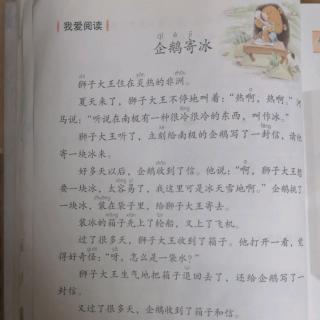 我爱阅读
qì é jì
企鹅寄冰
狮子大王住在炎热的非洲。
夏天来了，狮子大王不停地叫着：“热啊，热啊。”
马说：“听说在南极有一种很冷很冷的东西，叫作冰。”
狮子大王听了，立刻给南极的企鹅写了一封信，请
寄一块冰来。
好多天以后，企鹅收到了信。他说：“啊，狮子大王想
要一块冰，太容易了，我这里可是冰天雪地啊。”企鹅挑了
一块冰，装在袋子里，给狮子大王寄去。
装冰的箱子先上了轮船，又上了飞机。
过了很多天，狮子大王收到了箱子。他打开一看，
得好奇怪：“呀，怎么是一袋水？”
狮子大王生气地把箱子退回去了，还给企鹅写了一
封信。
又过了很多天，企鹅收到了箱子和信。